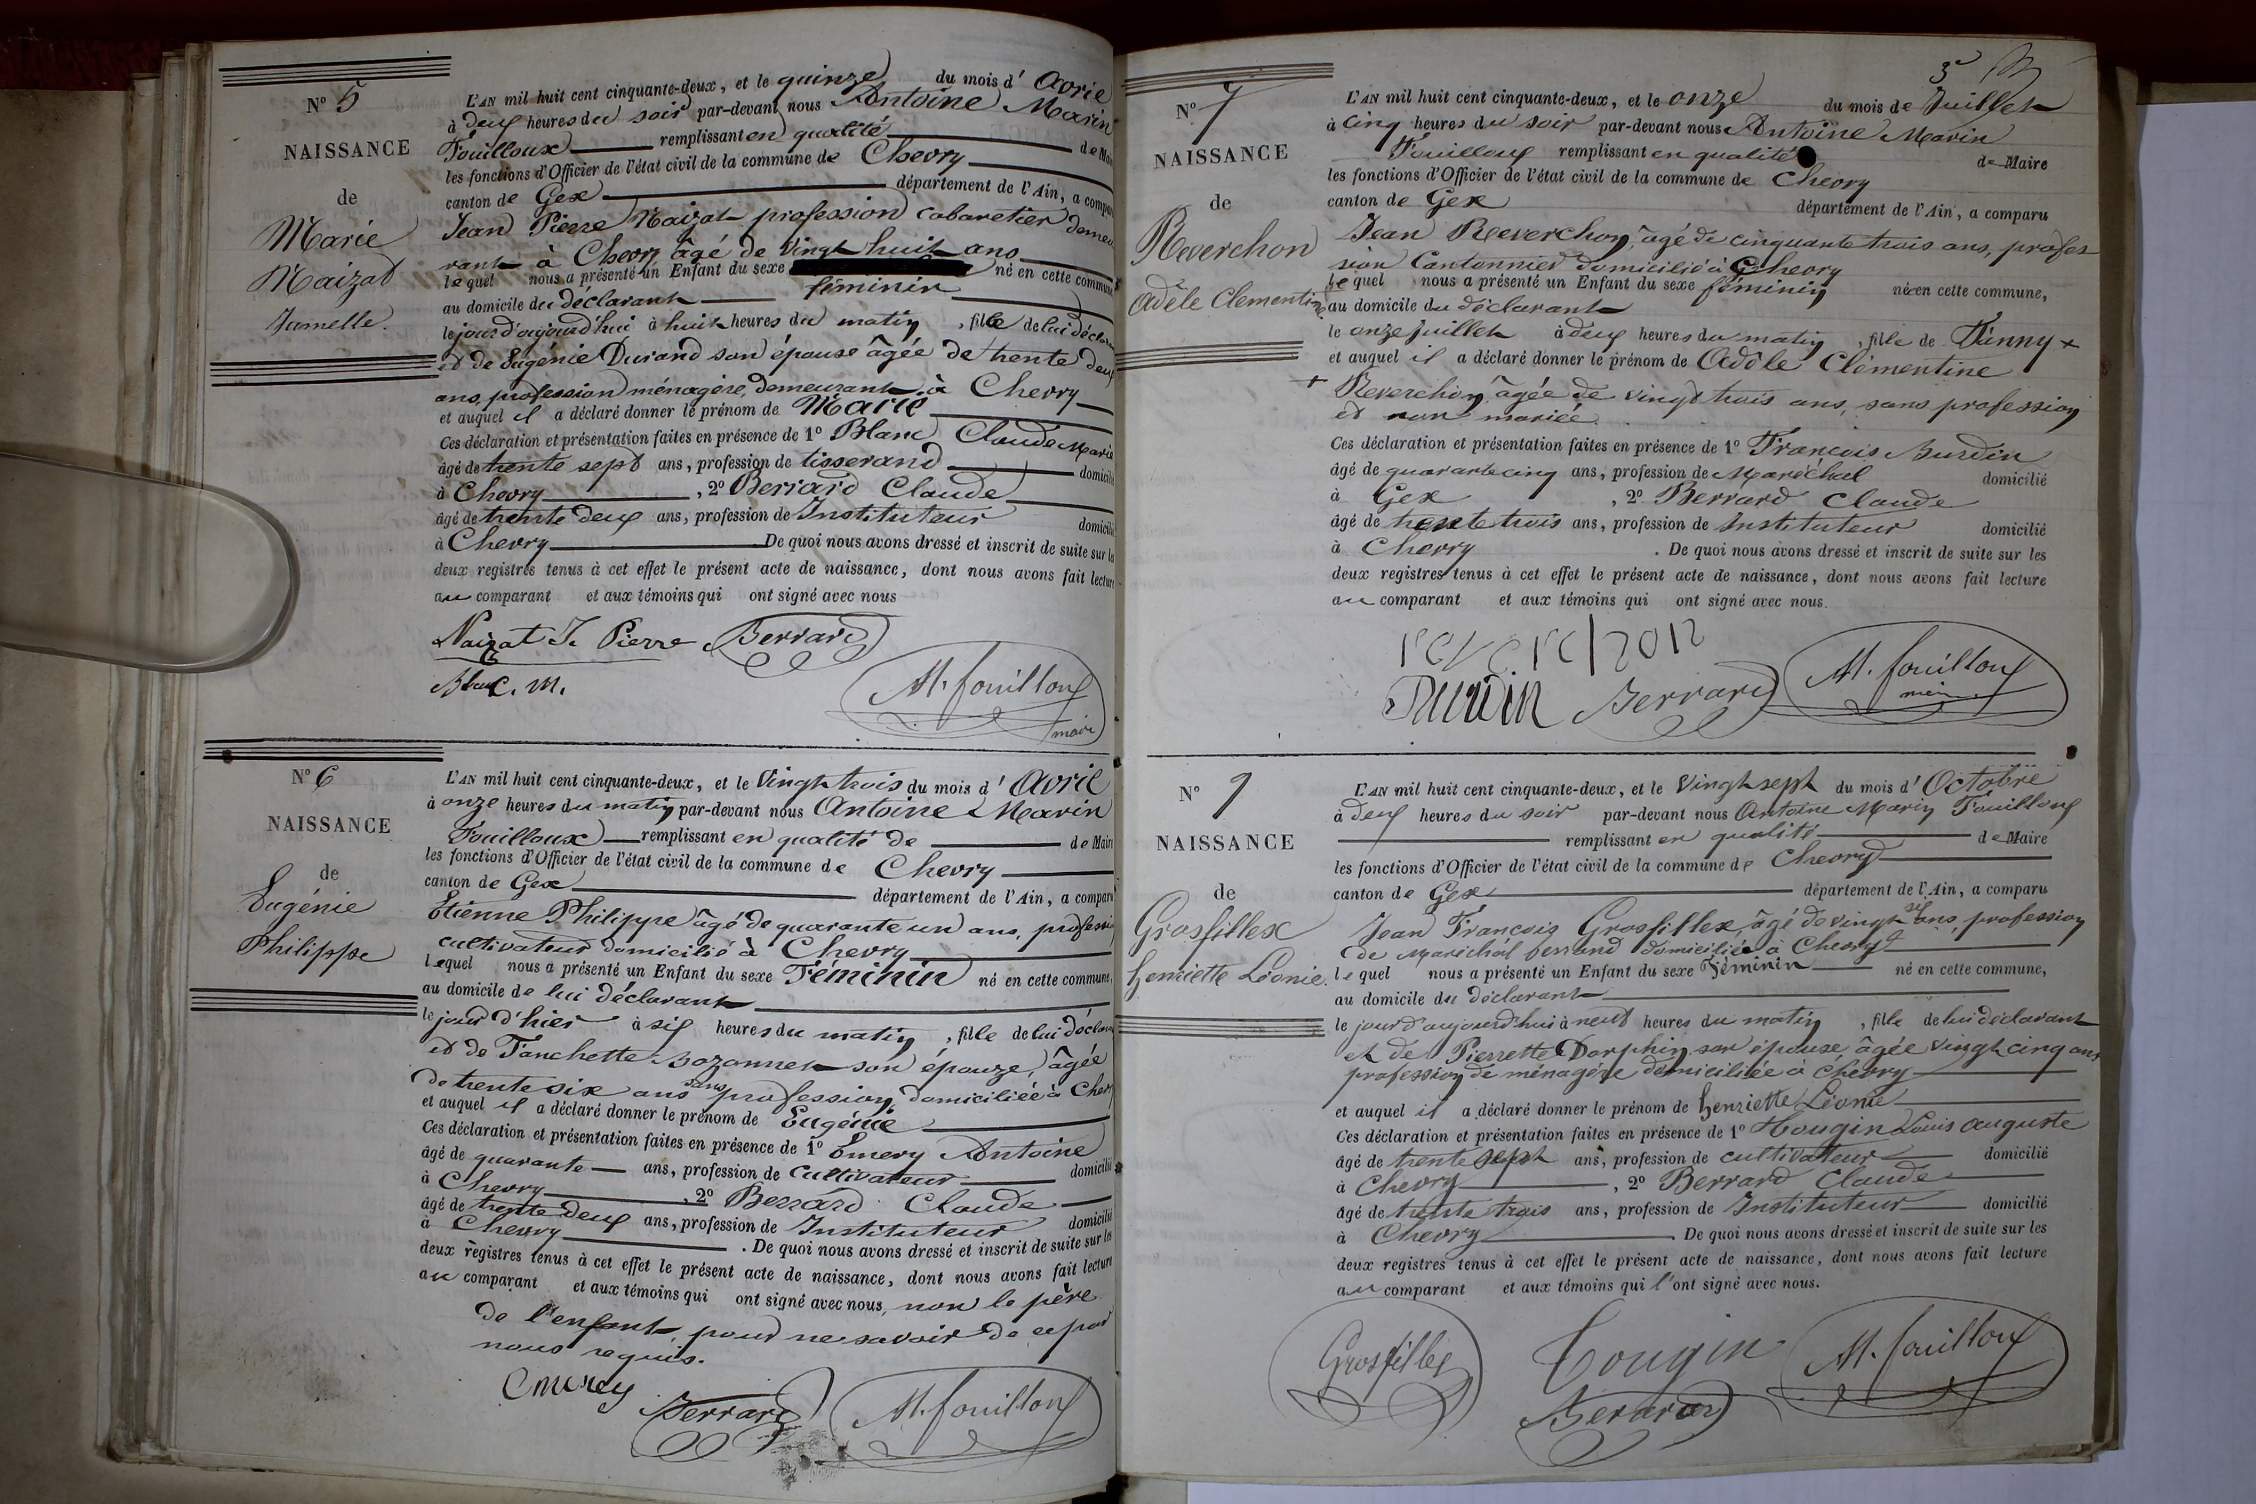 N° 5
NAISSANCE
de
Marie
Naizat
Jumelle.
L'AN mil huit cent cinquante-deux, et le quinze du mois d' Avril
à deux heures du soir par-devant nous Antoine Marin
Fouilloux remplissant en qualité de Mair
les fonctions d'Officier de l'état civil de la commune de Chevry
canton de Gex département de l'Ain, a compar
Jean Pierre Naizat profession cabaretier demeu
rant à Chevry âgé de Vingt huit ans
lequel nous a présenté un Enfant du sexe né en cette commune
féminin
au domicile du déclarant
le jour d'aujourd'hui à huit heures du matin, fille de lui déclara
et de Eugénie Durand son épouse âgée de trente deux
ans, profession ménagère, demeurant à Chevry
et auquel il a déclaré donner le prénom de Marie
Ces déclaration et présentation faites en présence de 1° Blanc Claude Marie
âgé de trente sept ans, profession de tisserand domicilié
à Chevry, 2° Berrard Claude
âgé de trente deux ans, profession de Instituteur domicilié
à Chevry De quoi nous avons dressé et inscrit de suite sur les
deux registres tenus à cet effet le présent acte de naissance, dont nous avons fait lecture
au comparant et aux témoins qui ont signé avec nous
Naizat J. Pierre Berrard
Blanc. M.
M. fouilloux
maire
N° 6
NAISSANCE
de
Eugénie
Philippe
L'AN mil huit cent cinquante-deux, et le Vingt trois du mois d' Avril
à onze heures du matin par-devant nous Antoine Marin
Fouilloux remplissant en qualité de de Maire
les fonctions d'Officier de l'état civil de la commune de Chevry
canton de Gex département de l'Ain, a comparu
Etienne Philippe âgé de quarante un ans, professi
cultivateur domicilié à Chevry
lequel nous a présenté un Enfant du sexe Féminin né en cette commune,
au domicile de lui déclarant
le jour d'hier à six heures du matin, fille de lui déclara
et de Fanchette Bozonnet son épouze, âgée
de trente six ans sans profession, domiciliée à Chevr
et auquel il a déclaré donner le prénom de Eugénie
Ces déclaration et présentation faites en présence de 1° Emery Antoine
âgé de quarante ans, profession de Cultivateur domicilié
à Chevry, 2° Berrard Claude
âgé de trente deux ans, profession de Instituteur domicilié
à Chevry. De quoi nous avons dressé et inscrit de suite sur les
deux registres tenus à cet effet le présent acte de naissance, dont nous avons fait lecture
au comparant et aux témoins qui ont signé avec nous, non le père
de l'enfant, pour ne savoir de ce par
nous requis.
Emery
Berrard M. fouilloux
3
N° 7
NAISSANCE
de
Reverchon
Adèle Clementine
L'AN mil huit cent cinquante-deux, et le onze du mois de Juillet
à cinq heures du soir par-devant nous Antoine Marin
Fouilloux remplissant en qualité de Maire
les fonctions d'Officier de l'état civil de la commune de Chevry
canton de Gex département de l'Ain, a comparu
Jean Reverchon, âgé de cinquante trois ans, profes
sion Cantonnier domicilié à Chevry
lequel nous a présenté un Enfant du sexe féminin née en cette commune,
au domicile du déclarant
le onze juillet à deux heures du matin, fille de Fanny +
et auquel il a déclaré donner le prénom de Adèle Clémentine
+ Reverchon, âgée de vingt trois ans, sans profession
et non mariée.
Ces déclaration et présentation faites en présence de 1° François Burdin
âgé de quarante cinq ans, profession de Maréchal domicilié
à Gex, 2° Berrard Claude
âgé de trente trois ans, profession de Instituteur domicilié
à Chevry. De quoi nous avons dressé et inscrit de suite sur les
deux registres tenus à cet effet le présent acte de naissance, dont nous avons fait lecture
au comparant et aux témoins qui ont signé avec nous.
Burdin Berrard M. fouilloux
N° 9
NAISSANCE
de
Grosfillex
henriette Léonie.
L'AN mil huit cent cinquante-deux, et le Vingt sept du mois d' Octobre
à deux heures du soir par-devant nous Antoine Marin Fouilloux
remplissant en qualité de Maire
les fonctions d'Officier de l'état civil de la commune de Chevry
canton de Gex département de l'Ain, a comparu
Jean François Grosfillex, âgé de vingt six ans, profession
de Maréchal ferrand domicilié à Chevry
lequel nous a présenté un Enfant du sexe Féminin né en cette commune,
au domicile du déclarant
le jour d'aujourd'hui à neuf heures du matin, fille de lui déclarant
et de Pierrette Dorphin son épouse âgée vingt cinq ans
profession de ménagère domiciliée à Chevry
et auquel il a déclaré donner le prénom de henriette Léonie
Ces déclaration et présentation faites en présence de 1° Hougin Louis Auguste
âgé de trente sept ans, profession de cultivateur domicilié
à Chevry, 2° Berrard Claude
âgé de trente trois ans, profession de Instituteur domicilié
à Chevry. De quoi nous avons dressé et inscrit de suite sur les
deux registres tenus à cet effet le présent acte de naissance, dont nous avons fait lecture
au comparant et aux témoins qui l'ont signé avec nous.
Grosfillex Tougin M. fouilloux
Berrard